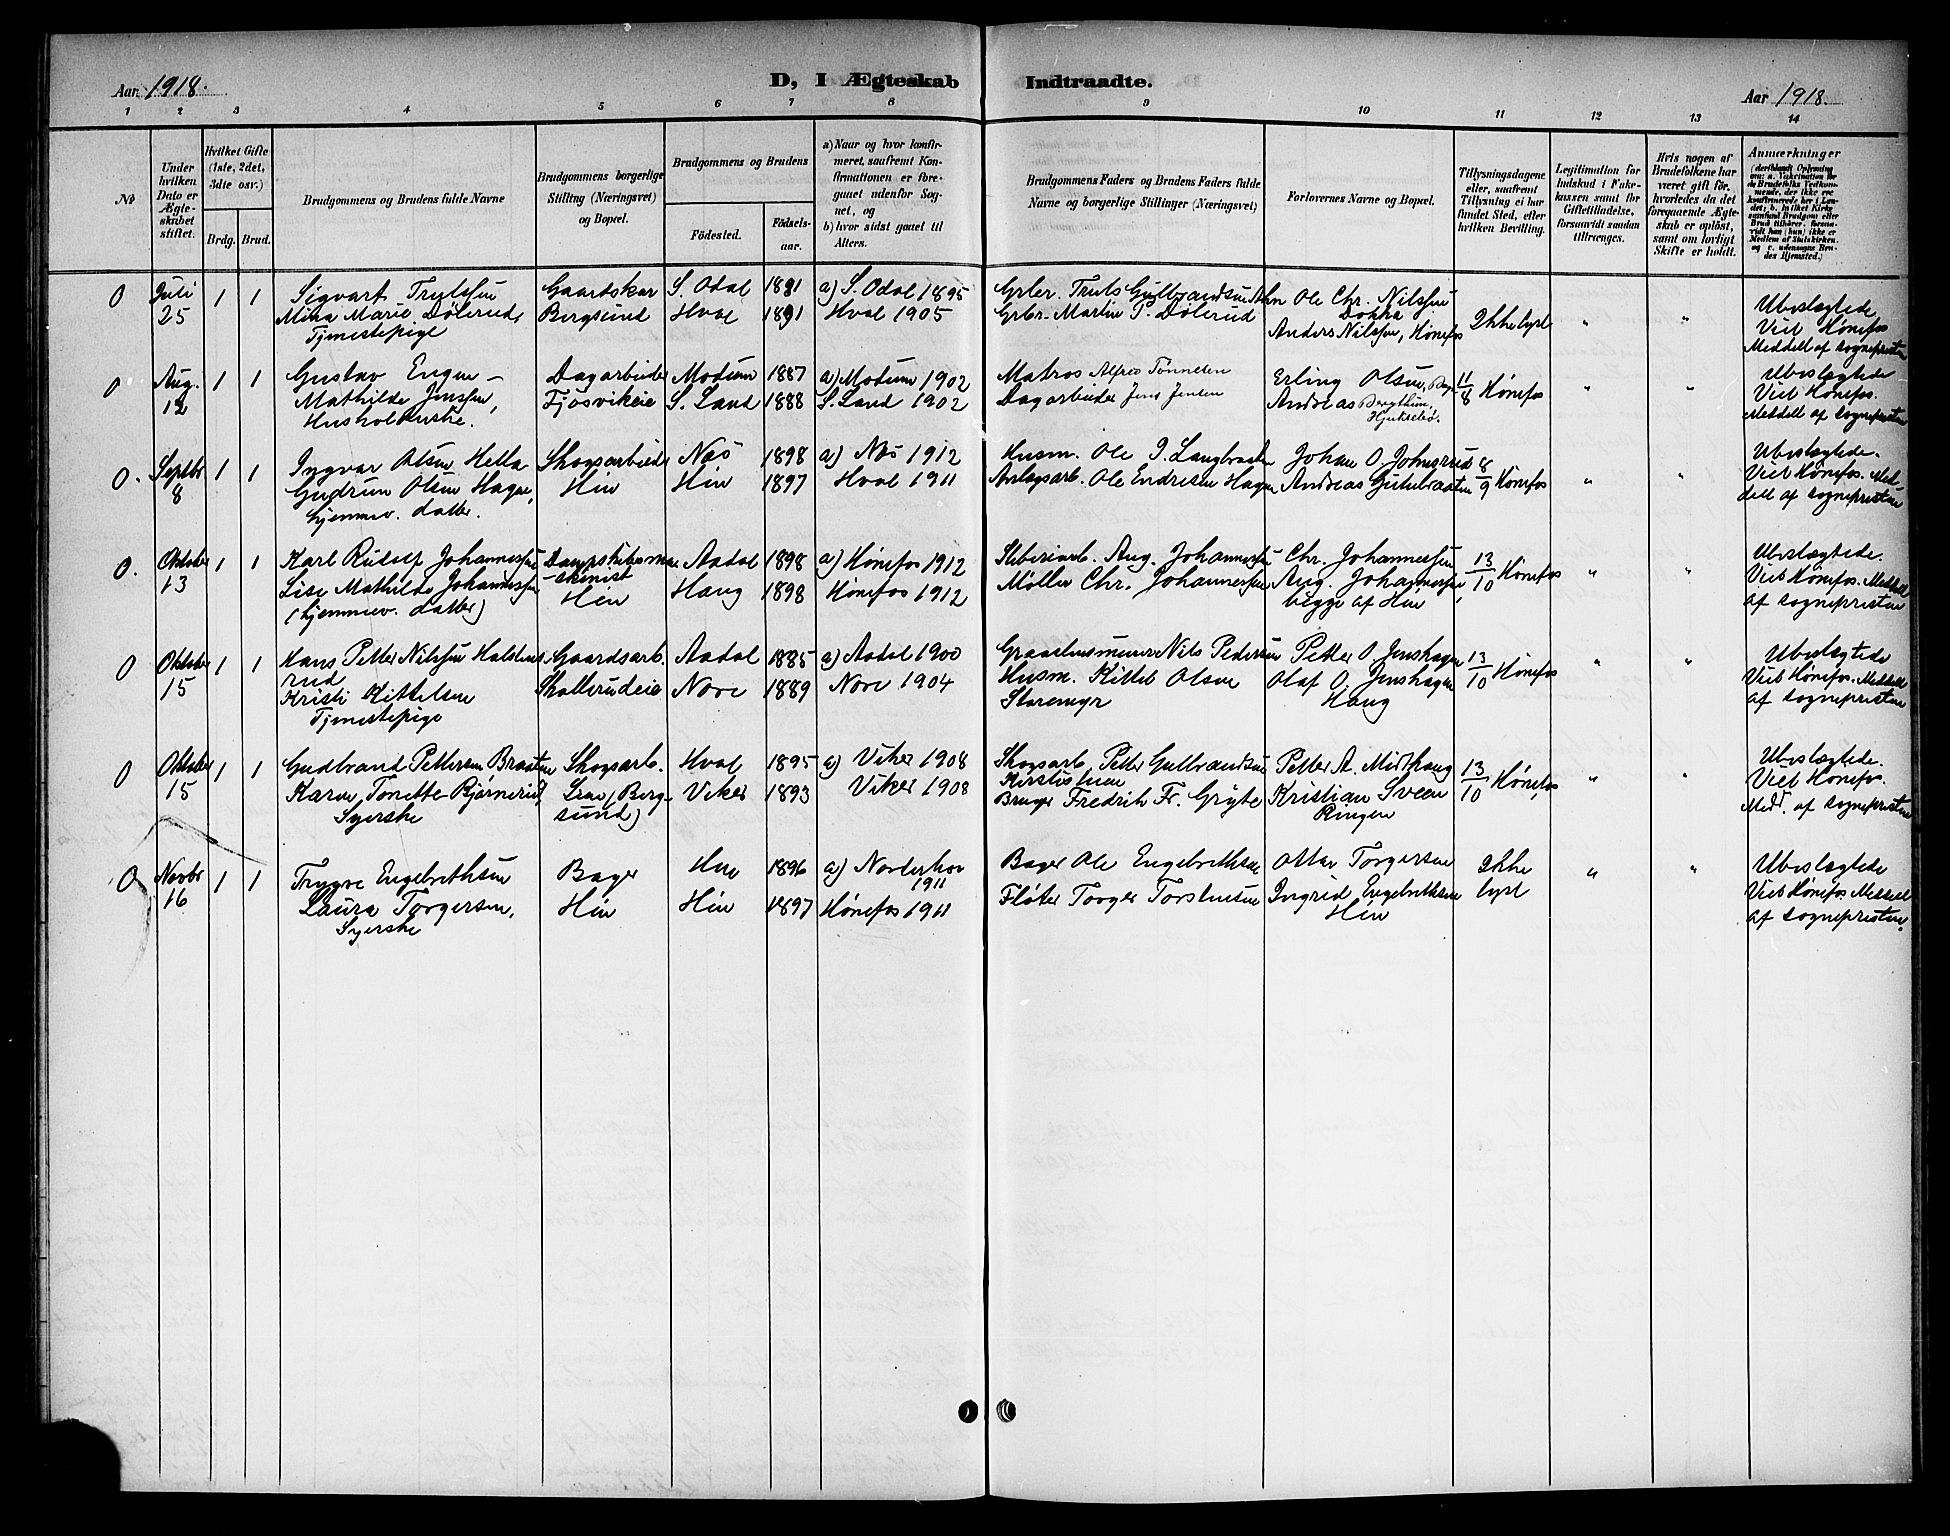 Aar 1918.
D, I Ægteskab Indtraadte.
Aar 1918.
1 2 3 4 5 6 7 8 9 10 11 12 13 14
No
Under hvilken Dato er Ægteskabet stiftet.
Hvilket Gifte (1ste, 2det, 3die osv.)
Brdg. Brud.
Brudgommens og Brudens fulde Navne
Brudgommens borgerlige Stilling (Næringsvei) og Bopæl.
Brudgommens og Brudens
Fødested.
Fødselsaar.
a) Naar og hvor konfirmeret, saafremt Konfirmationen er foregaaet udenfor Sognet, og
b) hvor sidst gaaet til Alters.
Brudgommens Faders og Brudens Faders fulde Navne og borgerlige Stillinger (Næringsvei)
Forlovernes Navne og Bopæl.
Tillysningsdagene eller, saafremt Tillysning ei har fundet Sted, efter hvilken Bevilling.
Legitimation for Indskud i Enkekassen samt for Giftetilladelse, forsaavidt saadan tiltrænges.
Hvis nogen af Brudefolkene har været gift før, hvorledes da det foregaaende Ægteskab er opløst, samt om lovligt Skifte er holdt.
Anmærkninger
0 Juli 25 1 1
Sigvart Trulssen
Mina Marie Dølerud,
Tjenestepige
Gaardskar
Bergsund
S. Odal 1881 a) S. Odal 1895
Hval 1891 Hval 1905
Grbr. Truls Gulbrandsen
Grbr. Martin P. Dølerud
Ole Chr. Nilssen
Dokka
Anders Nilssen, Hønefos
Ikke lyst " "
Ubeslægtede
Viet Hønefos
Meddelt af sognepresten
0 Aug. 12 1 1
Gustav Engen –
Mathilde Jenssen,
Husholderske.
Dagarbeider
Fjøsvikeie
Modum 1887 a) Modum 1902
S. Land 1888 S. Land 1902
Matros Alfred Tønnesen
Dagarbeider Jens Jensen
Erling Olsen,
Andreas Bergthun,
11/8 Hønefos " "
Ubeslægtede
Viet Hønefos.
Meddelt af sognepresten
0. Septbr 8 1 1
Ingvar Olsen Hella
Gudrun Olsen Hagen,
hjemmev. datter.
Skogsarbeider
Hen
Næs 1898 a) Næs 1912
Hen 1897 Hval 1911
Husm. Ole P. Langbraaten
Anlægsarb. Ole Endresen Hagen
Johan O. Johnsrud
Andreas Gutubraaten
8/9 Hønefos " "
Ubeslægtede.
Viet Hønefos. Meddelt af sognepresten
0. Oktober 13 1 1
Karl Rudolf Johannessen
Lise Mathilde Johannessen
(hjemmev. datter)
Dampskibsmaskinist
Hen
Aadal 1898 a) Hønefos 1912
Haug 1898 Hønefos 1912
Sliberiarb. Aug. Johannessen
Møller Chr. Johannessen
Chr. Johannessen
Aug. Johannessen,
begge af Hen
13/10 Hønefos " "
Ubeslægtede.
Viet Hønefos. Meddelt
af sognepresten
0 Oktober 15 1 1
Hans Petter Nilssen Halstensrud
Kristi Kittelsen
Tjenestepige
Gaardsarb.
Skollerudeie
Aadal 1885 a) Aadal 1900
Nore 1889 Nore 1904
Nils Pedersen
Husm. Kittel Olsen
Storemyr
Petter O. Jenshagen
Olaf O. Jenshagen
Haug
13/10 Hønefos " "
Ubeslægtede
Viet Hønefos. Meddelt
af sognepresten
0 Oktober 15 1 1
Gudbrand Pettersen Braaten
Karen Tonette Bjørnerud,
Syerske
Skogsarb.
Bergsund)
Hval 1895 a) Viker 1908
Viker 1893 Viker 1908
Skogsarb. Petter Gulbrandsen
Kirstistuen
Bruger Fredrik Fr. Gryte
Petter A. Midthaug
Kristian Sveen
Ringen
13/10 Hønefos " "
Ubeslægtede.
Viet Hønefos.
Medd. af sognepresten
0 Novbr 16 1 1
Trygve Engebrethsen
Laura Torgersen,
Syerske
Bager
Hen
Hen 1896 a) Norderhov 1911
Hen 1897 Hønefos 1911
Bager Ole Engebrethsen
Fløter Torger Torstensen
Ottar Torgersen
Ingrid Engebrethsen
Hen
Ikke lyst " "
Ubeslægtede
Viet Hønefos. Meddelt
af sognepresten.